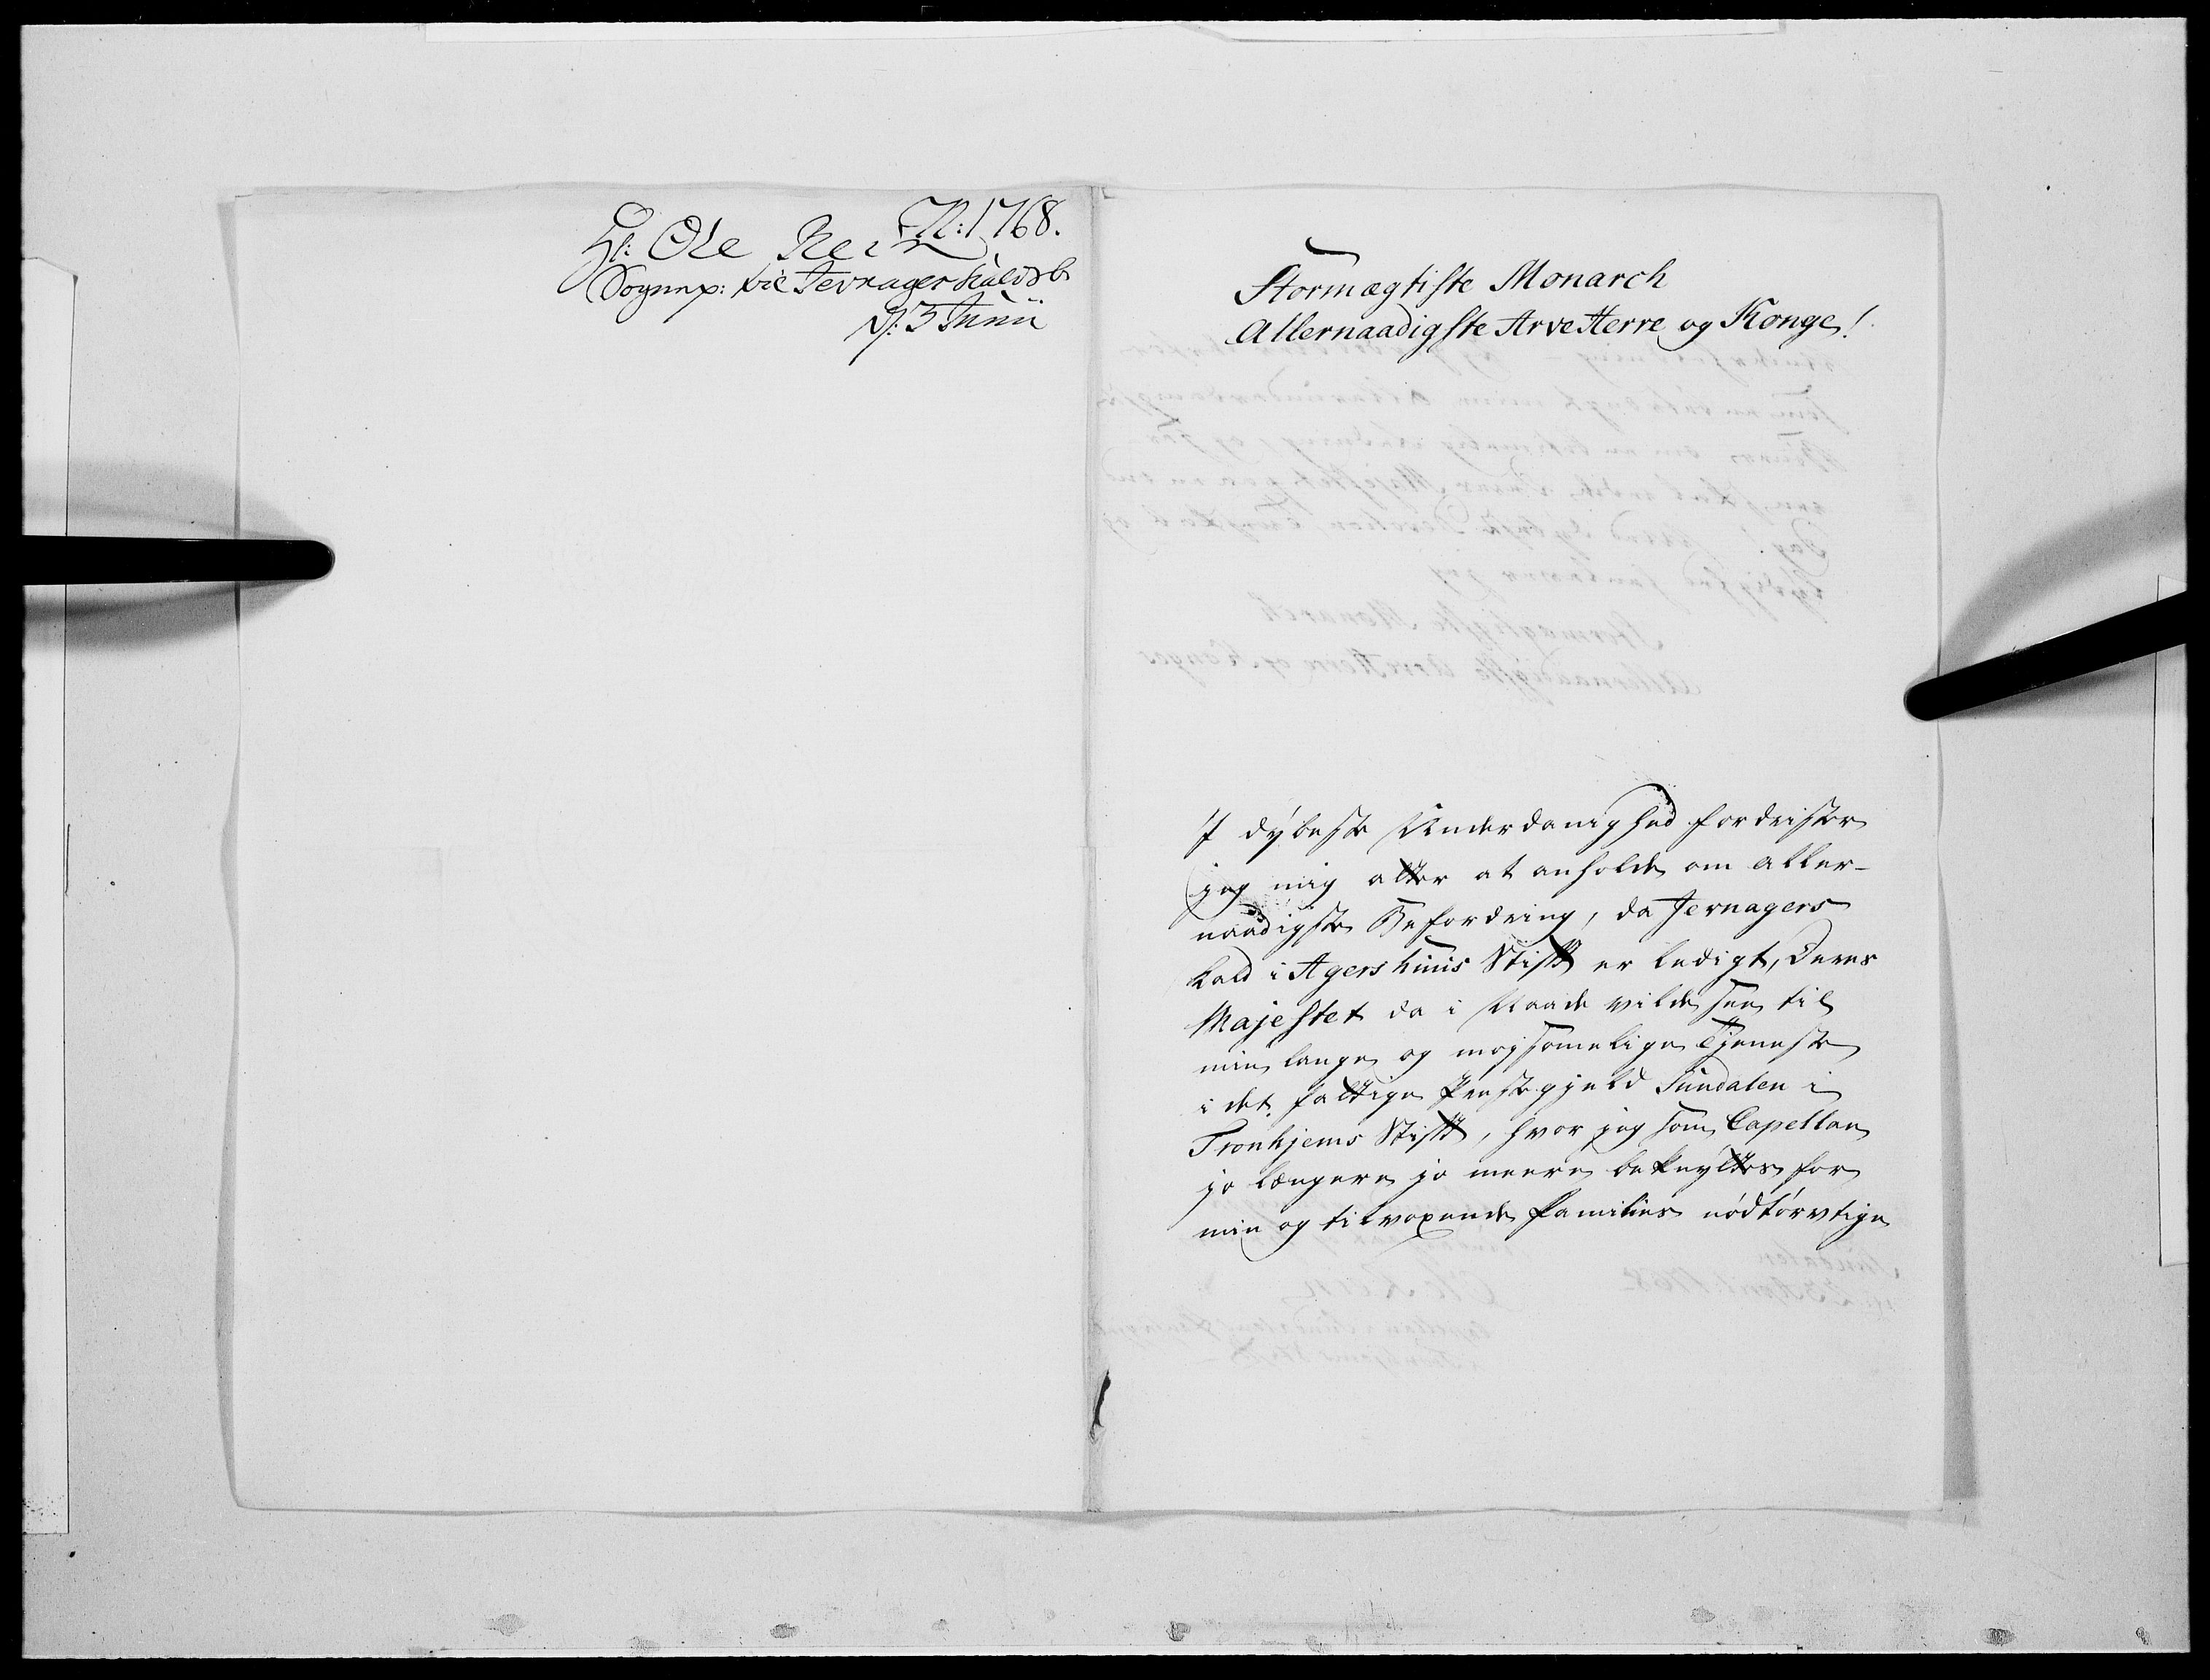 N: 1768.
Hr: Ole Rein
Sognep: til Jevnager Kald
d: 3 Junii
Stormægtiste Monarch
Allernaadigste Arve Herre og Konge!
I dybeste Underdanighed fordrister
jeg mig atter at anholde om aller-
naadigste Befordring, da Jevnagers
kald i Agershuus Stift er ledigt, Deres
Majestet da i Naade vilde see til
min lange og møjsommelige Tjeneste
i det fattige Præstegjeld Sundalen i
Tronhjems Stift, hvor jeg som Capellan
jo længere jo meere beknyttes for
min og tilvoxende Families nødtørvtige